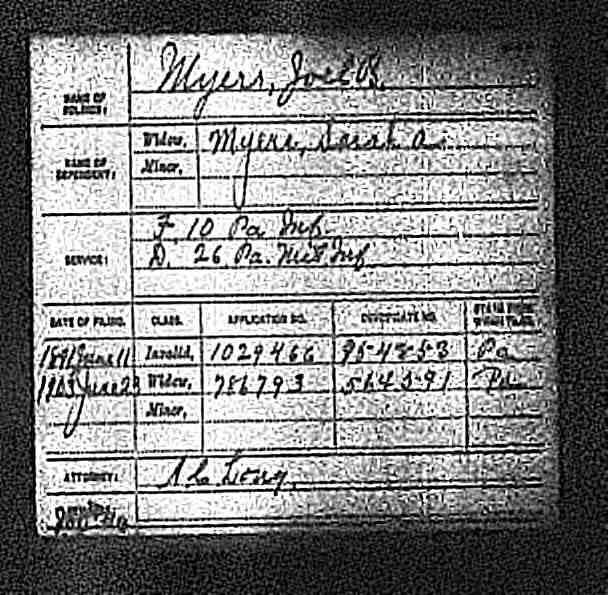 Myers, Joel B.
NAME OF SOLDIER:
NAME OF DEPENDENT:
Widow, Myers, Sarah A.
Minor,
SERVICE:
F. 10 Pa Inf.
D. 26 Pa. Mil Inf
DATE OF FILING. CLASS. APPLICATION NO. CERTIFICATE NO. STATE FROM WHICH FILED.
1891 June 11 Invalid, 1029466 954853 Pa
June 23 Widow, 786793 564591 Pa
Minor,
ATTORNEY: